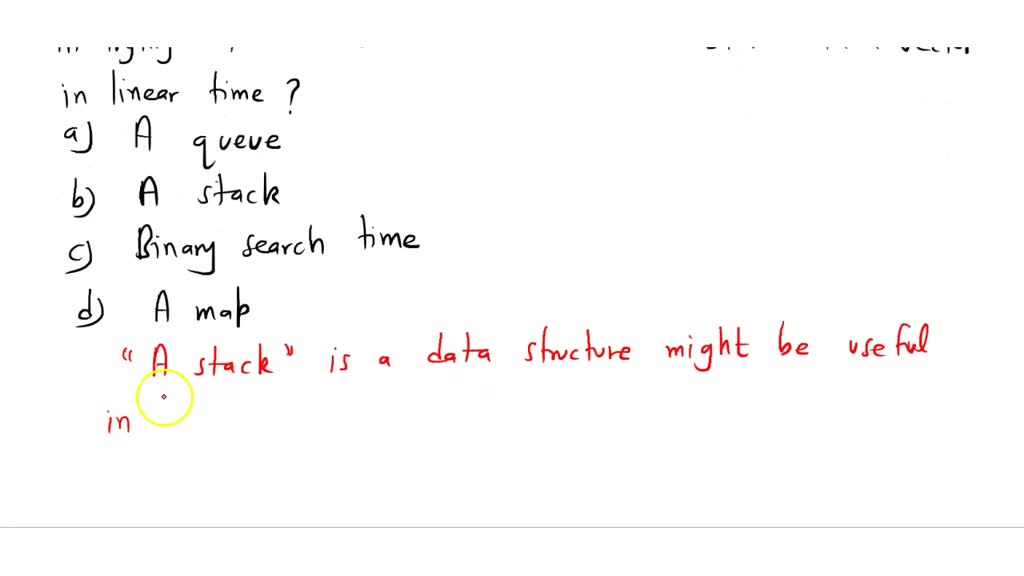 in linear time ?
a) A queue
b) A stack
c) Binary search time
d) A map
"A stack" is a data structure might be useful
in